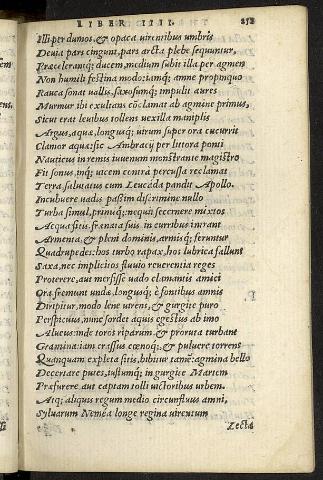 LIBER IIII. 252
Illi per dumos, & opaca uirentibus umbris
Deuia pars cingunt, pars arcta plebe sequuntur,
Præcelerantq; ducem, medium subit illa per agmen
Non humili festina modo: iamq; amne propinquo
Rauca sonat uallis, saxosumq; impulit aures
Murmur ibi exultans cōclamat ab agmine primus,
Sicut erat leuibus tollens uexilla maniplis
Argus, aquæ, longusq; uirum super ora cucurrit
Clamor aquæ: sic Ambracij per littora ponti
Nauticus in remis iuuenum monstrante magistro
Fit sonus. inq; uicem contra percussa reclamat
Terra salutatus cum Leucada pandit Apollo.
Incubuere uadis passim discrimine nullo
Turba simul, primiq; nequit secernere mixtos
Aequa sitis. frænata suis in curribus intrant
Armenta, & pleni dominis, armisq; feruntur
Quadrupedes: hos turbo rapax, hos lubrica fallunt
Saxa, nec implicitos fluuio reuerentia reges
Proterere, aut mersisse uado clamantis amici
Ora. fremunt undæ. longusq; è fontibus amnis
Diripitur, modo lene uirens, & gurgite puro
Perspicuus, nunc sordet aquis egestus ab imo
Alueus: inde toros riparum & proruta turbant
Gramina: iam crassus cœnoq;. & puluere torrens
Quanquam expleta sitis, bibitur tamē: agmina bello
Decertare putes, iustumq; in gurgite Martem
Præfurere, aut captam tolli uictoribus urbem.
Atq; aliquis regum medio circunfluus amni,
Syluarum Nemea longe regina uirentum
Lecta